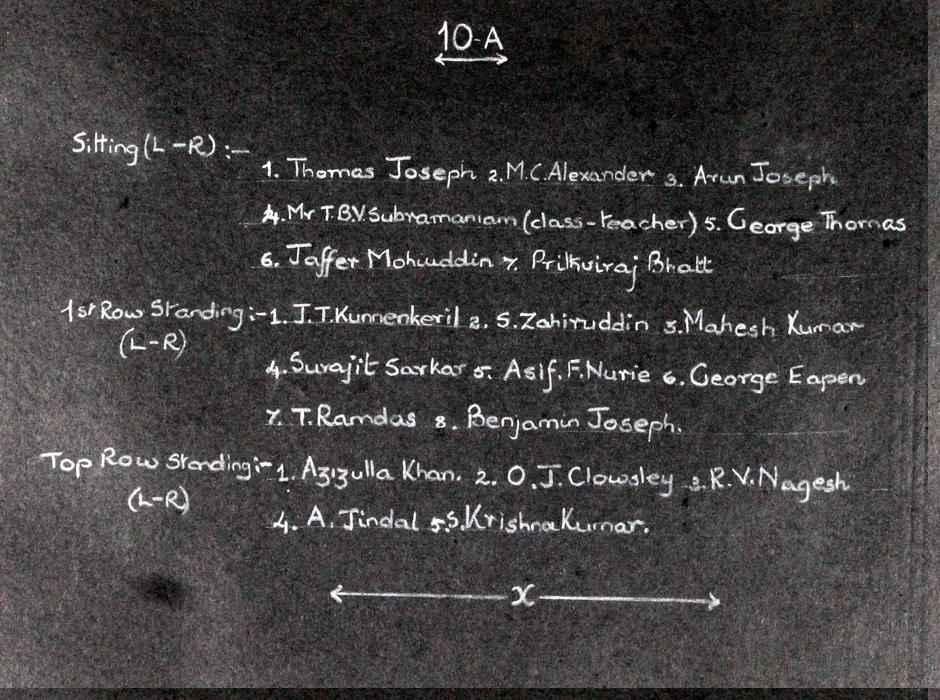 10-A
Sitting (L-R) :-
1. Thomas Joseph 2. M.C. Alexander 3. Arun Joseph
4. Mr T.B.V. Subramaniam (class-teacher) 5. George Thomas
6. Jaffer Mohiuddin 7. Prithviraj Bhatt
1st Row Standing :- 1. J.T. Kunnenkeril 2. S. Zahiruddin 3. Mahesh Kumar
(L-R)
4. Surajit Sarkar 5. Asif. F. Nurie 6. George Eapen
7. T. Ramdas 8. Benjamin Joseph.
Top Row Standing :- 1. Azizulla Khan. 2. O.J. Clowsley 3. R.V. Nagesh
(L-R)
4. A. Jindal 5. S. Krishna Kumar.
x